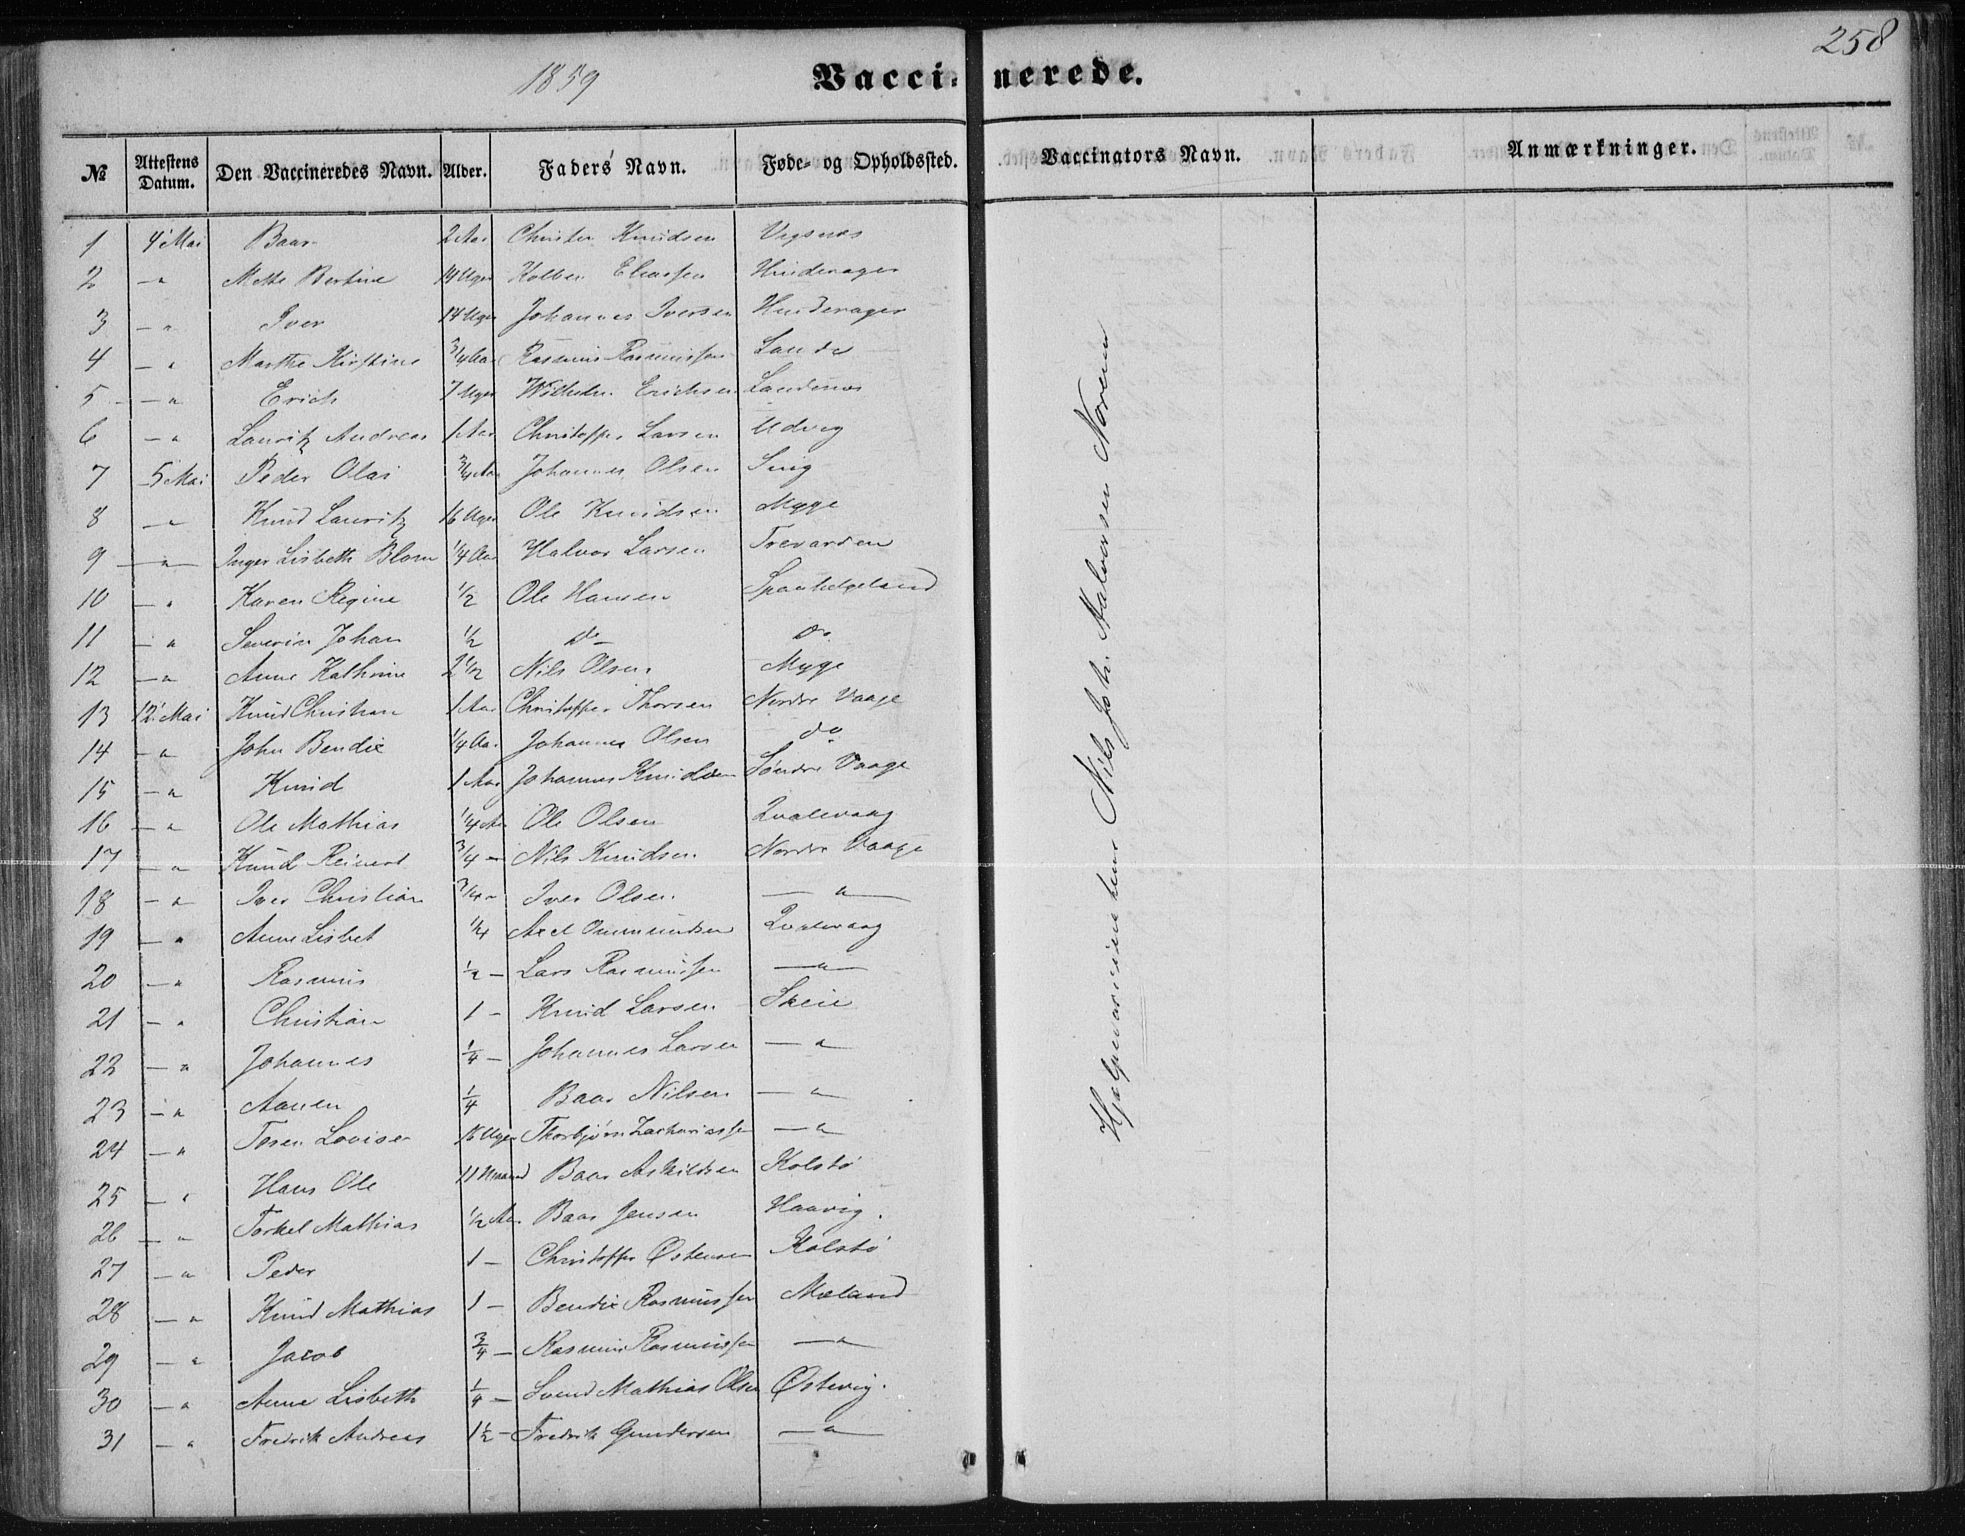 258
1859
Vaccinerede.
№ Attestens Datum. Den Vaccineredes Navn. Alder. Faders Navn. Føde- og Opholdssted. Vaccinators Navn. Anmærkninger.
1 4 Mai Baar 2 Aar Christen Knudsen Vigsnes
2 — " Mette Bertine 14 Uger Eliassen Hinderager
3 — " Iver 14 Uger Johannes Iversen Hinderager
4 — " Marthe Kirstine 3/4 Aar Rasmus Rasmussen Lande
5 — " Erich 7 Uger Wilhelm Erichsen Landenes
6 — " Lauritz Andreas 1 Aar Christoffer Larsen Udvig
7 5 Mai Peder Olai 3/4 Aar Johannes Olsen
8 — " Knud Lauritz 16 Uger Ole Knudsen Myge
9 — " Inger Lisbeth Blom 1/4 Aar Halvor Larsen Trevarden
10 — " Karen Regine 1/2 Ole Hansen Spanhelgeland
11 — " Severin Johan 1/2 do do.
12 — " Anne Kathrine 2 1/2 Nils Olsen Myge
13 12 Mai Knud Christian 1 Aar Christoffer Thorsen Nordre Vaage
14 — " John Bendix 1/4 Aar Johannes Olsen do
15 — " Knud 1 Aar Johannes Knudsen Søndre Vaage
16 — " Ole Mathias 1/4 Aar Ole Olsen Qvalevaag
17 — " Knud Reinert 3/4 — Nils Knudsen Nordre Vaage
18 — " Iver Christian 3/4 — Iver Olsen — " —
19 — " Anne Lisbet 1/4 Axel Ommundsen Qvalevaag
20 — " Rasmus 1/2 — Lars Rasmussen — " —
21 — " Christian 1 — Knud Larsen Skeie
22 — " Johannes 1/4 — Johannes Larsen — "
23 — " Aanen 1/4 Baar Nilsen — "
24 — " Toren Lovise 16 Uger Thorbjørn Zachariassen — "
25 — " Hans Ole 11 Baar Askildsen Kolstø
26 — " Torkel Mathias 1/2 Aar Baar Jensen Haavig.
27 — " Peder 1 — Christoffer Østensen Kolstø
28 — " Knud Mathias 1 — Bendix Rasmussen Mæland
29 — " Jacob 3/4 — Rasmus Rasmussen — "
30 — " Anne Lisbeth 1/4 — Svend Mathias Olsen Østevig.
31 — " Fredrik Andreas 1 1/2 — Fredrik Gundersen — " —
Hjælpevaccinateur Nils Joh. Halvorsen Norem